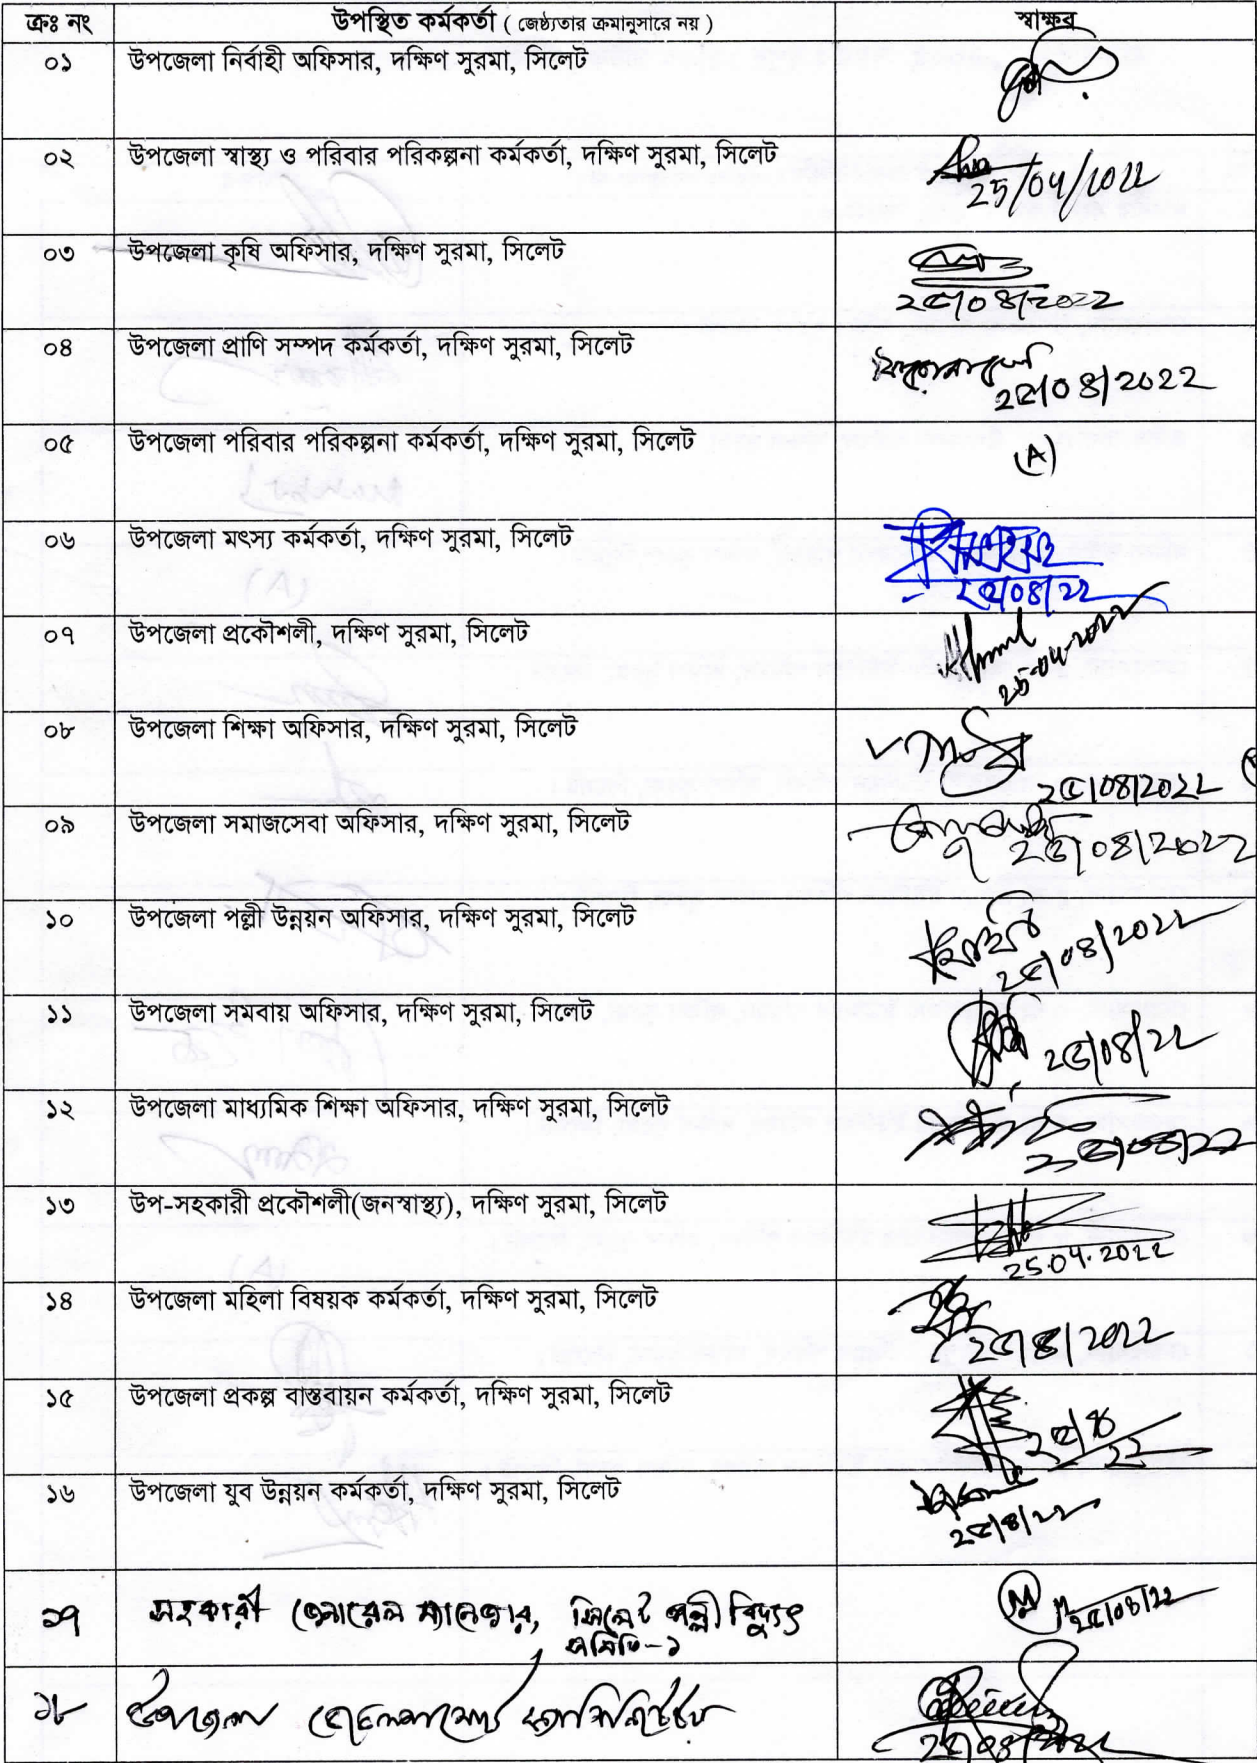 ক্রঃ নং উপস্থিত কর্মকর্তা ( জেষ্ঠ্যতার ক্রমানুসারে নয় ) স্বাক্ষর
০১ উপজেলা নির্বাহী অফিসার, দক্ষিণ সুরমা, সিলেট
০২ উপজেলা স্বাস্থ্য ও পরিবার পরিকল্পনা কর্মকর্তা, দক্ষিণ সুরমা, সিলেট
25/04/2022
০৩ উপজেলা কৃষি অফিসার, দক্ষিণ সুরমা, সিলেট
২৫/০৪/২০২২
০৪ উপজেলা প্রাণি সম্পদ কর্মকর্তা, দক্ষিণ সুরমা, সিলেট
২৫/০৪/২০২২
০৫ উপজেলা পরিবার পরিকল্পনা কর্মকর্তা, দক্ষিণ সুরমা, সিলেট (A)
০৬ উপজেলা মৎস্য কর্মকর্তা, দক্ষিণ সুরমা, সিলেট
২৫/০৪/২২
০৭ উপজেলা প্রকৌশলী, দক্ষিণ সুরমা, সিলেট
25-04-2022
০৮ উপজেলা শিক্ষা অফিসার, দক্ষিণ সুরমা, সিলেট
২৫/০৪/২০২২
০৯ উপজেলা সমাজসেবা অফিসার, দক্ষিণ সুরমা, সিলেট
২৫/০৪/২০২২
১০ উপজেলা পল্লী উন্নয়ন অফিসার, দক্ষিণ সুরমা, সিলেট
২৫/০৪/২০২২
১১ উপজেলা সমবায় অফিসার, দক্ষিণ সুরমা, সিলেট
২৫/০৪/২২
১২ উপজেলা মাধ্যমিক শিক্ষা অফিসার, দক্ষিণ সুরমা, সিলেট
২৫/০৪/২২
১৩ উপ-সহকারী প্রকৌশলী(জনস্বাস্থ্য), দক্ষিণ সুরমা, সিলেট
25.04.2022
১৪ উপজেলা মহিলা বিষয়ক কর্মকর্তা, দক্ষিণ সুরমা, সিলেট
২৫/৪/২০২২
১৫ উপজেলা প্রকল্প বাস্তবায়ন কর্মকর্তা, দক্ষিণ সুরমা, সিলেট
২৫/৪
২২
১৬ উপজেলা যুব উন্নয়ন কর্মকর্তা, দক্ষিণ সুরমা, সিলেট
২৫/৪/২২
১৭ সহকারী জেনারেল ম্যানেজার, সিলেট পল্লী বিদ্যুৎ
২৫/০৪/২২
সমিতি-১
১৮ উপজেলা ডেভেলপমেন্ট ফ্যাসিলিটেটর